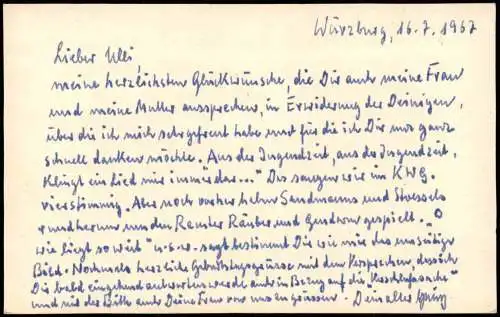 Würzburg, 16.7.1967
Lieber Uli,
meine herzlichsten Glückwünsche, die Dir auch meine Frau
und meine Mutter aussprechen, in Erwiderung der Deinigen,
über die ich mich sehr gefreut habe und für die ich Dir nur ganz
schnell danken möchte. „Aus der Jugendzeit, aus der Jugendzeit,
klingt ein Lied mir immerdar..." Das sangen wir im KWG.
vierstimmig. Aber noch vorher haben Sandmanns und
rundherum um den Räuber und Gendarm gespielt. „O
wie liegt so weit" u.s.w. sagt bestimmt Dir wie mir das
Bild. Nochmals herzliche Geburtstagsgrüsse mit dem Versprechen, dass ich
Dir bald eingehend antworten werde auch in Bezug auf die
und mit der Bitte auch Deine Frau von uns zu grüssen. Dein alter